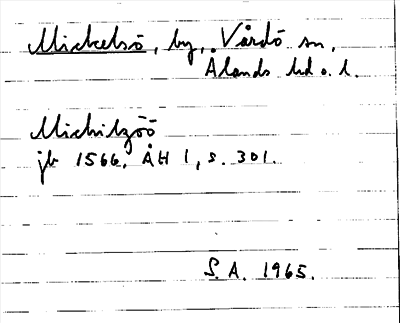 Mickelsö, by, Vårdö sn,
Ålands hd o. l.
Michilzöö
jb 1566, ÅH 1, s. 301.
S. A. 1965.